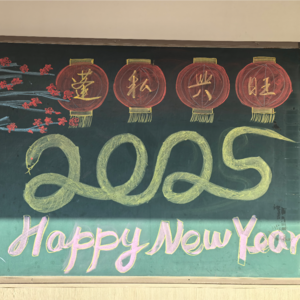 蓬私興旺
2025
Happy New Year